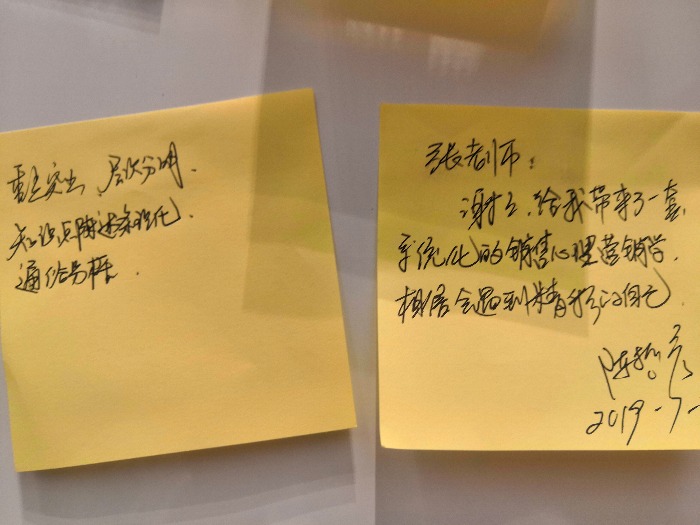 重点突出、层次分明.
知识点陈述系统化.
通俗易懂.
张老师:
谢谢、给我带来了一套
系统化的销售心理营销学.
相信会遇到精彩的自己
陈
2019-7-